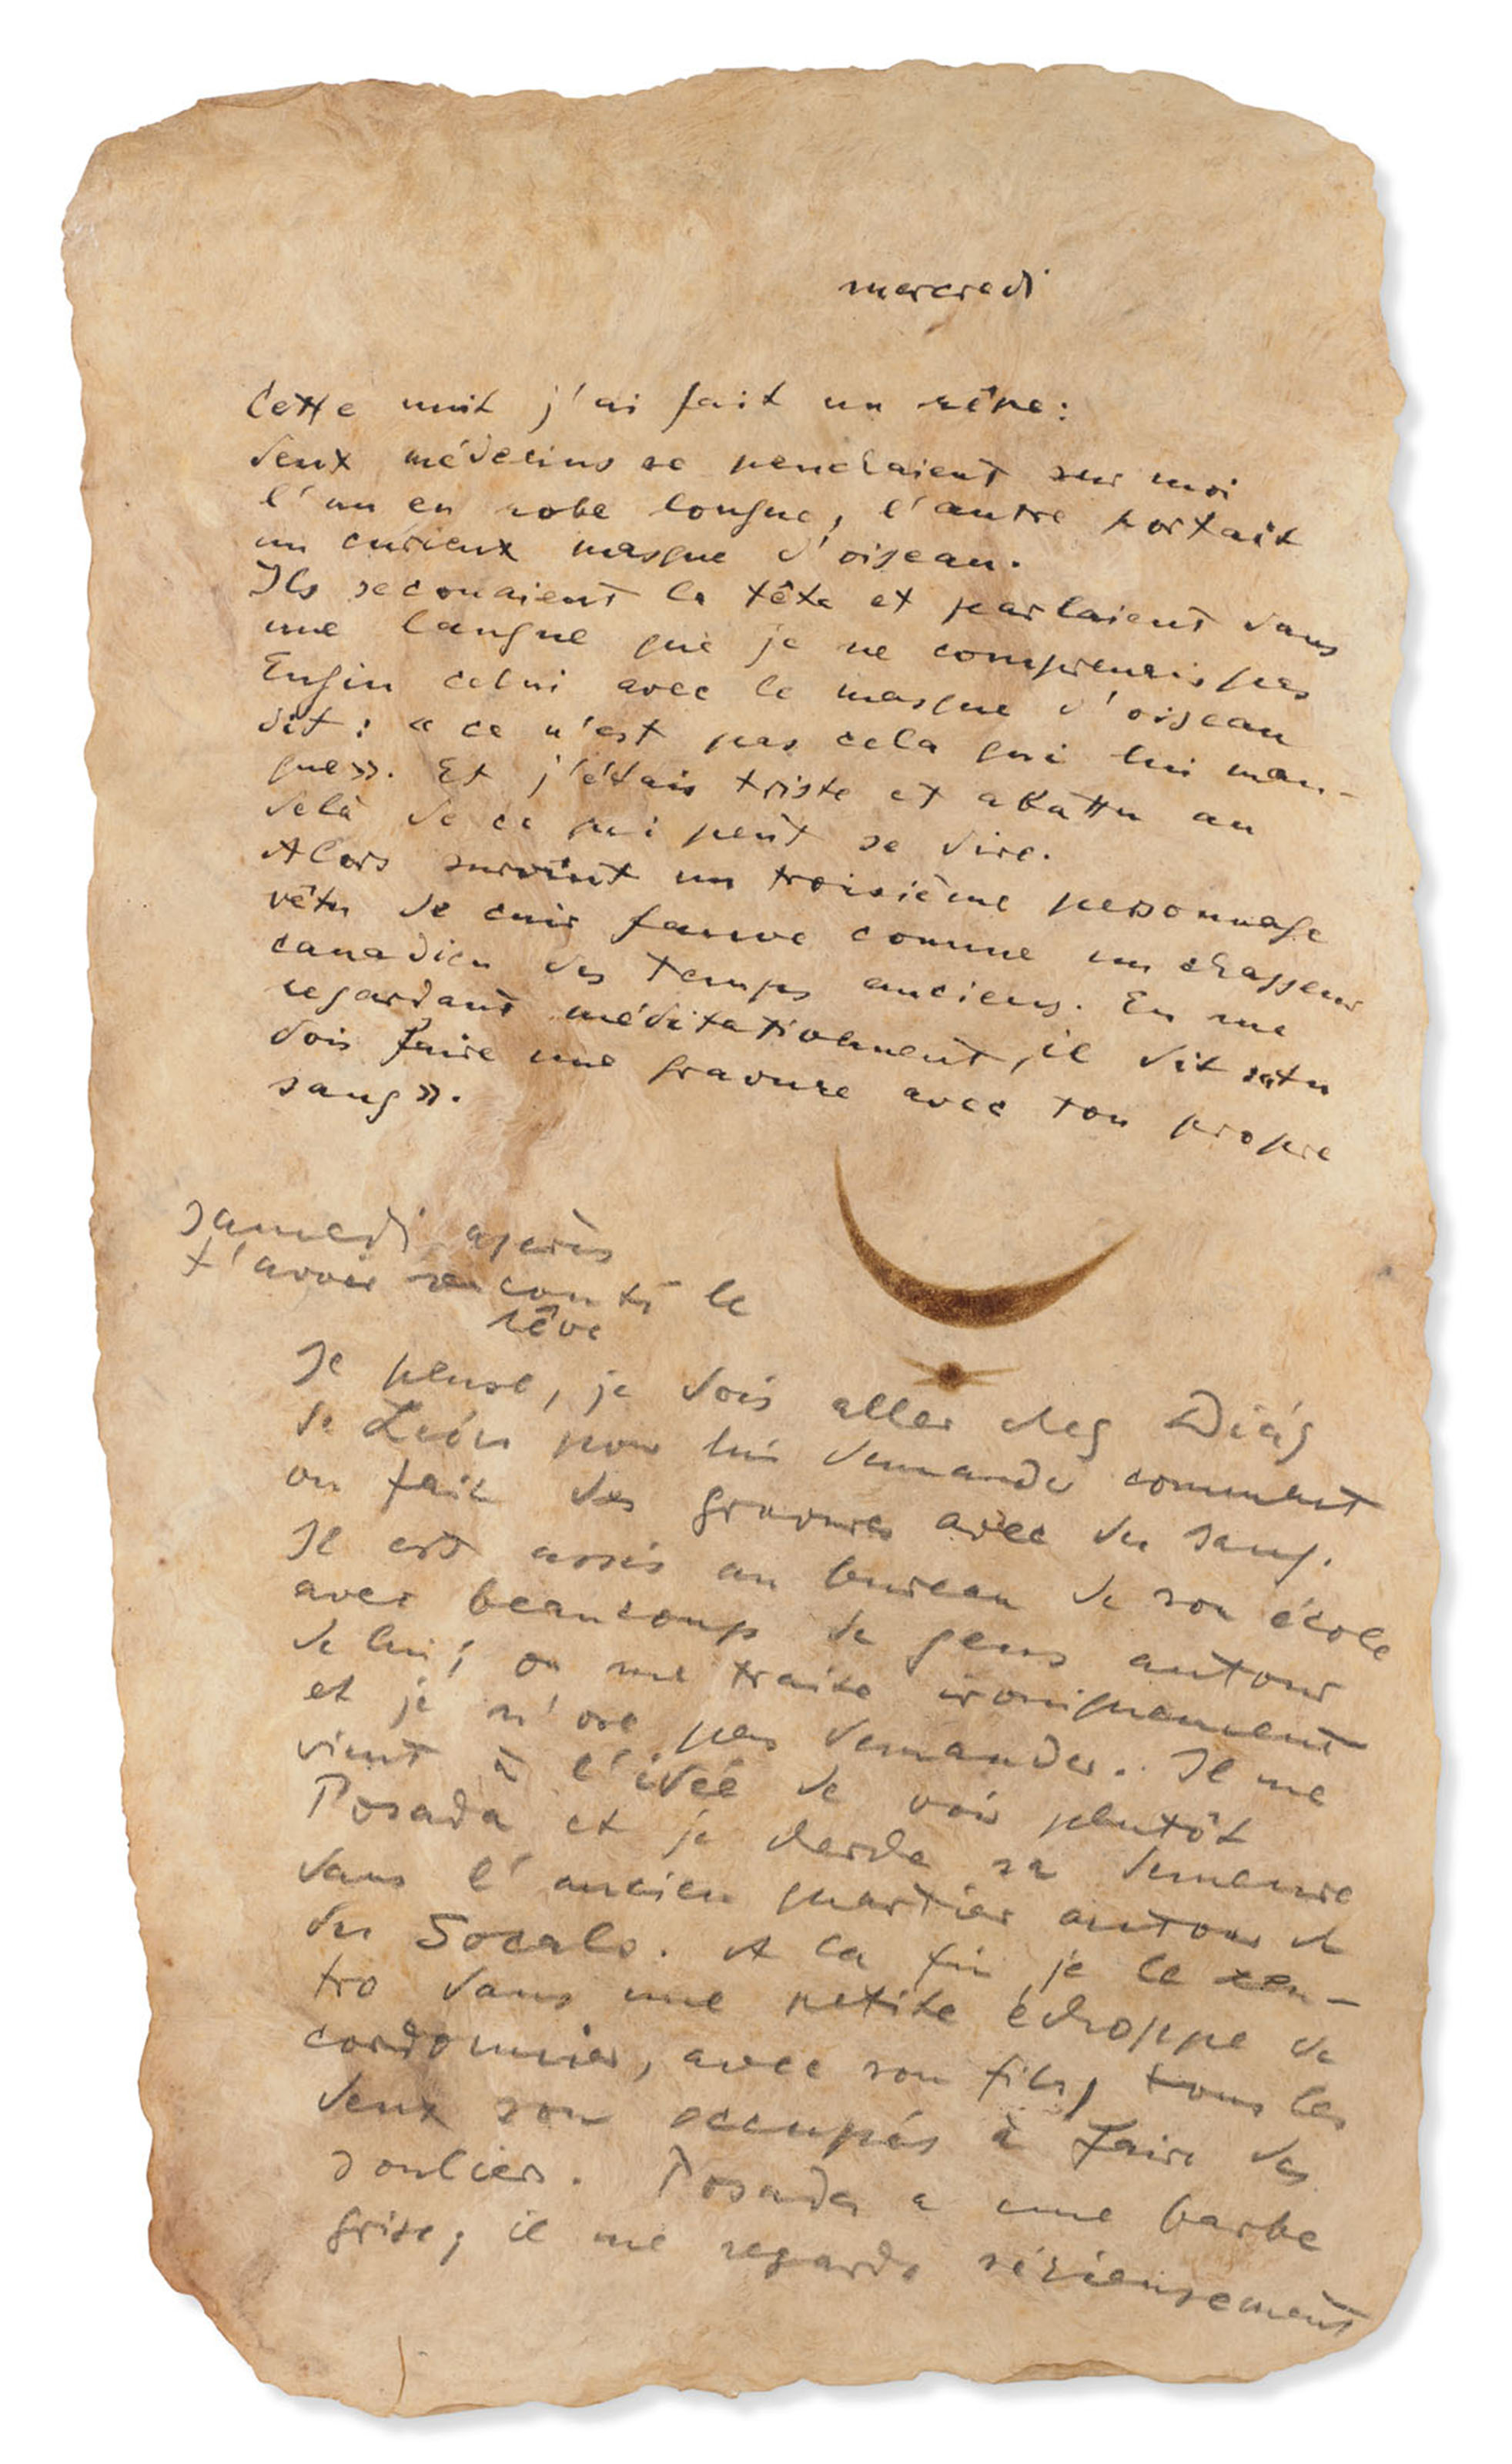 mercredi
Cette nuit j'ai fait un rêve:
deux médecins se penchaient sur moi
l'un en robe longue, l'autre portait
un curieux masque d'oiseau.
Ils secouaient la tête et parlaient dans
une langue que je ne comprenais pas
Enfin celui avec le masque d'oiseau
dit: « ce n'est pas cela qui lui man-
que». Et j'étais triste et abattu au
delà de ce qui peut se dire.
Alors survint un troisième personnage
vêtu de cuir fauve comme un chasseur
canadien des temps anciens. En me
regardant méditativement, il dit «tu
dois faire une gravure avec ton propre
sang».
samedi après
t'avoir raconté le
rêve
Je pense, je dois aller chez Diég
de León pour lui demander comment
on fait des gravures avec du sang.
Il est assis au bureau de son école
avec beaucoup de gens autour
de lui; on me traite ironiquement
et je n'ose pas demander. Il me
vient à l'idée de voir plutôt
Posada et je cherche sa demeure
dans l'ancien quartier autour de
du Socalo. A la fin je le ren-
tro dans une petite échoppe de
cordonnier, avec son fils, tous les
deux son occupés à faire des
souliers. Posada a une barbe
grise; il me regarde sérieusement